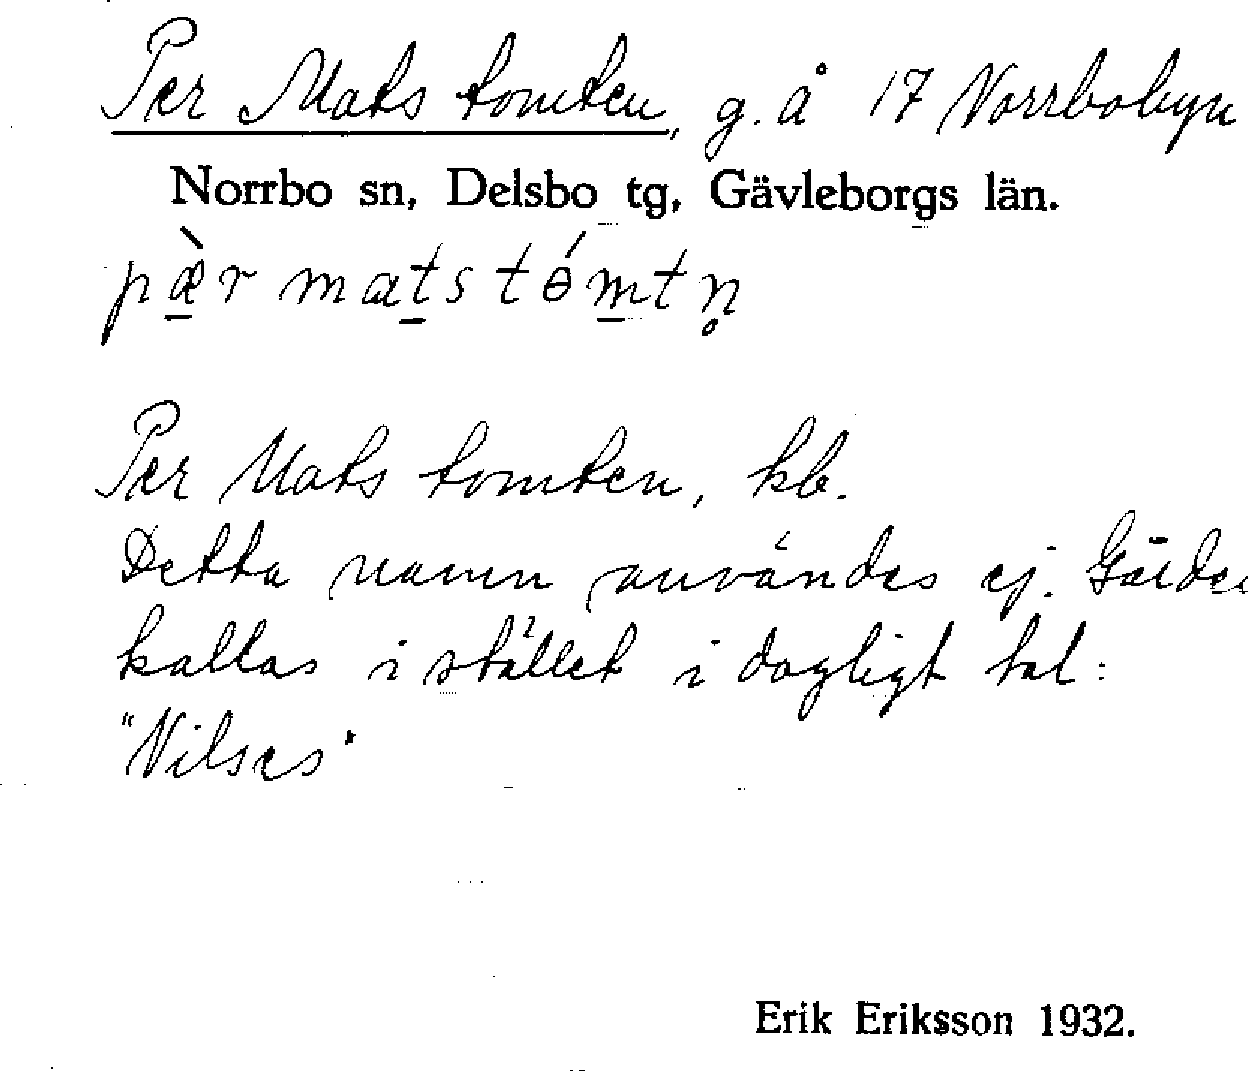 Per Mats tomten, g. å 17 Norrbobyn
Norrbo sn, Delsbo tg, Gävleborgs län.
pæ̀r mats tɵ́mtn̥
Per Mats tomten, kb.
Detta namn användes ej. Gården
kallas i stället i dagligt tal:
"Nilses"
Erik Eriksson 1932.